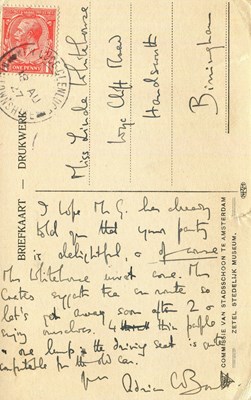 BRIEFKAART — DRUKWERK
Miss Linda Whitehouse
Wye Cliff Road
Handsworth
Birmingham
POSTAGE
ONE PENNY
AU
I hope Mr G. has already
told you that your party
is delightful, & of course
Mrs Whitehouse must come. Mrs
suggests tea en route so
let's get away soon after 2 &
enjoy ourselves. 4 thin people
& one lump in the driving seat is only
comfortable for the old car.
Yours
Adrian C Bou
COMMISSIE VAN STADSSCHOON TE AMSTERDAM
ZETEL STEDELIJK MUSEUM.